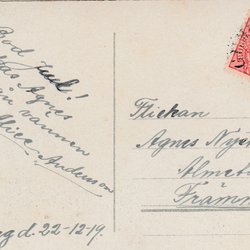 God Jul!
Agnes
från vännen
Alice Andersson
d. 22-12-19.
Flickan
Agnes Ny
Almet
Främm